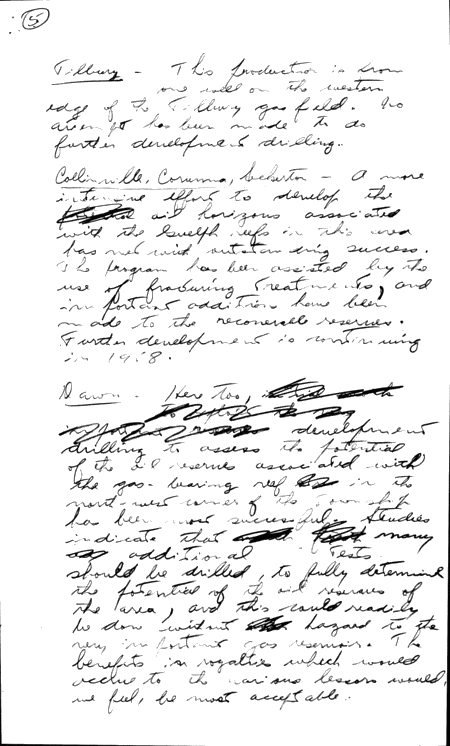 5
Tilbury - This production is from
one well on the western
edge of the Tilbury gas field. No
attempt has been made to do
further development drilling.
Collinville, Corunna, Becherton - A more
intensive effort to develop the
oil horizons associated
with the Guelph reefs in this area
has met with outstanding success.
The program has been assisted by the
use of fracturing treatments, and
important additions have been
made to the recoverable reserves.
Further development is continuing
in 1958.
Dawn - Here too,
development
drilling to assess the potential
of the oil reserves associated with
the gas-bearing reef in the
north-west corner of the Township
has been most successful. Studies
indicate that many
additional Tests
should be drilled, to fully determine
the potential of the oil reserves of
the area, and this could readily
be done without hazard to the
very important gas reservoir. The
benefits in royalties which would
accrue to the various lessors would,
we feel, be most acceptable.